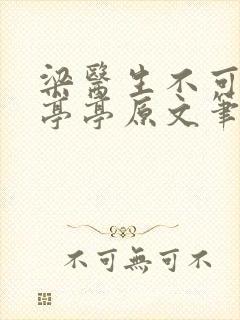 梁醫生不可
亭亭原文筆
不可無可不